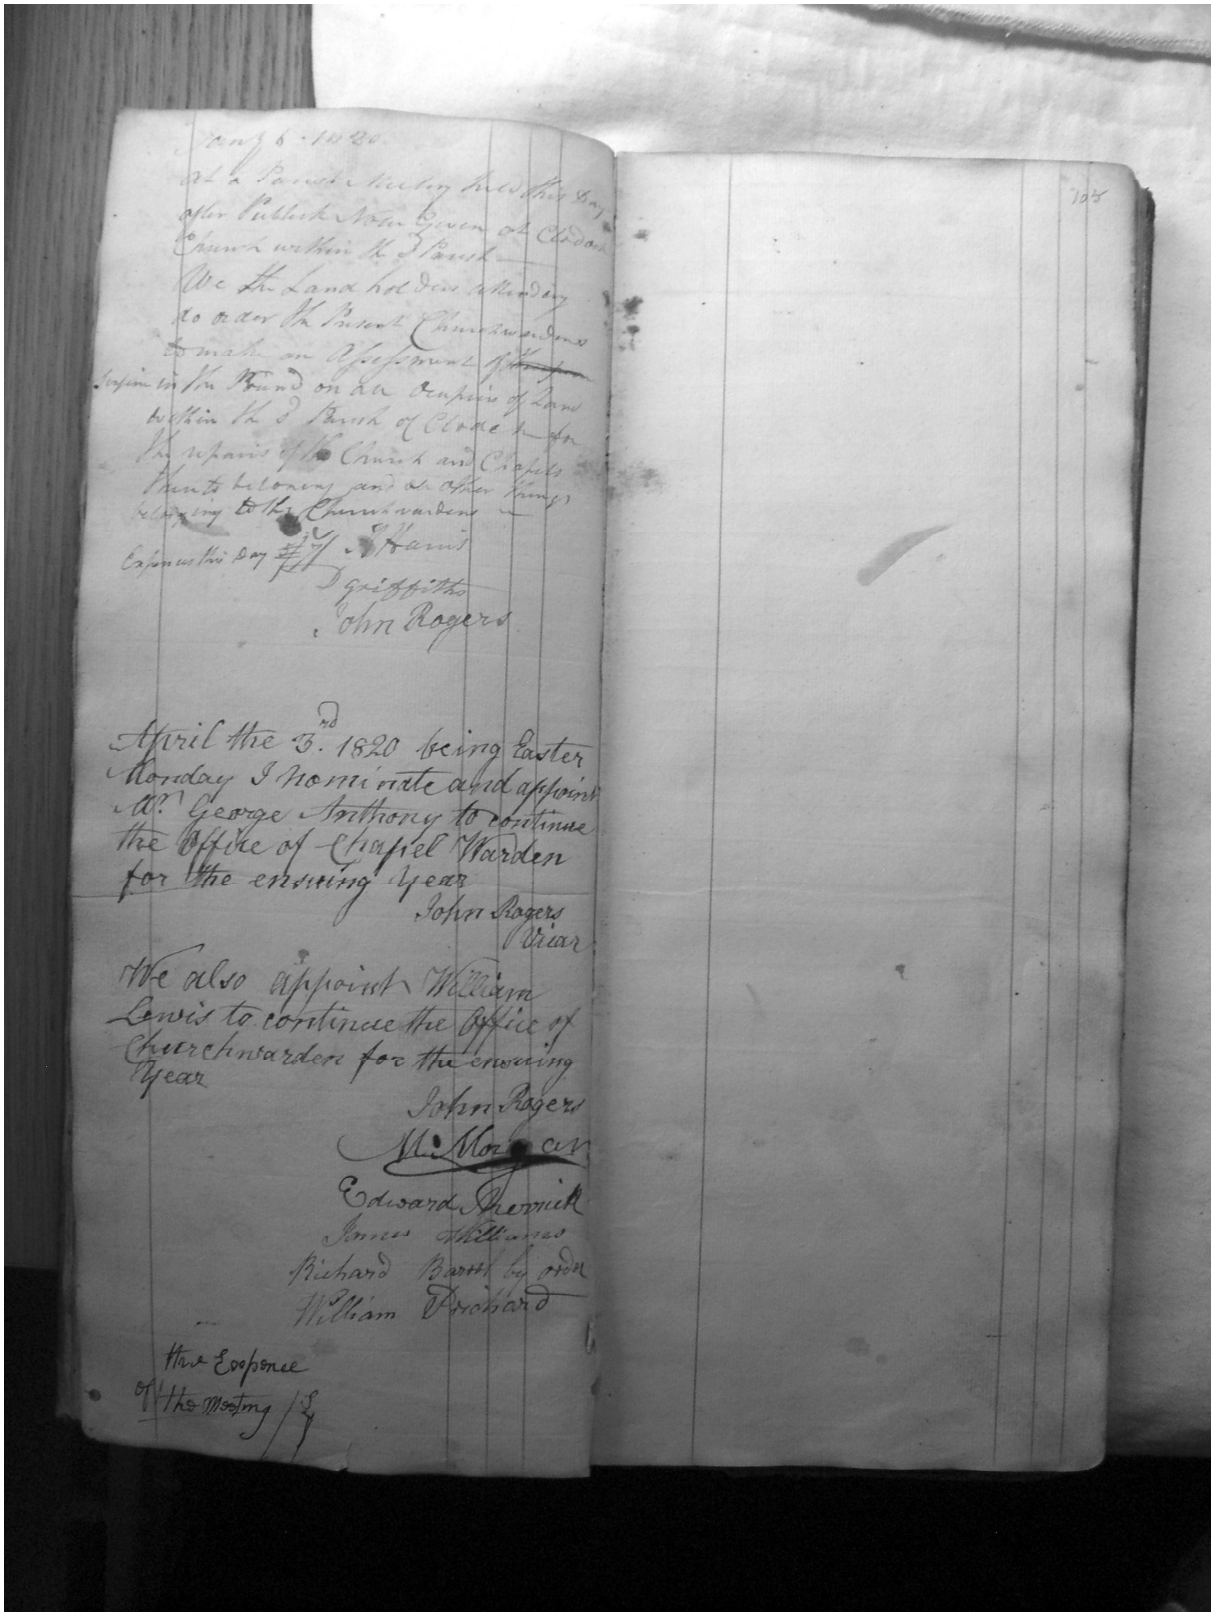 Jany 6 - 1820
At a Parish Meeting held this Day
after Publick Notice Given at Clodock
Church within the sd Parish
We the Land holders attending
do order the Present Churchwardens
to make an Assessment of
Sixpence in the Pound on all Occupiers of Land
within the sd Parish of Clodock for
the repairs of the Church and Chapels
thereto belonging and all other things
belonging to the Churchwardens
Expences this Day
Harris
D Griffiths
John Rogers
April the 3.rd 1820 being Easter
Monday I nominate and appoint
Mr. George Anthony to continue
the Office of Chapel Warden
for the ensuing Year
John Rogers
Vicar
We also appoint William
Lewis to continue the Office of
Churchwarden for the ensuing
Year
John Rogers
M. Morgan
Edward
James Williams
Richard by order
William Prichard
the Expence
of the Meeting
105